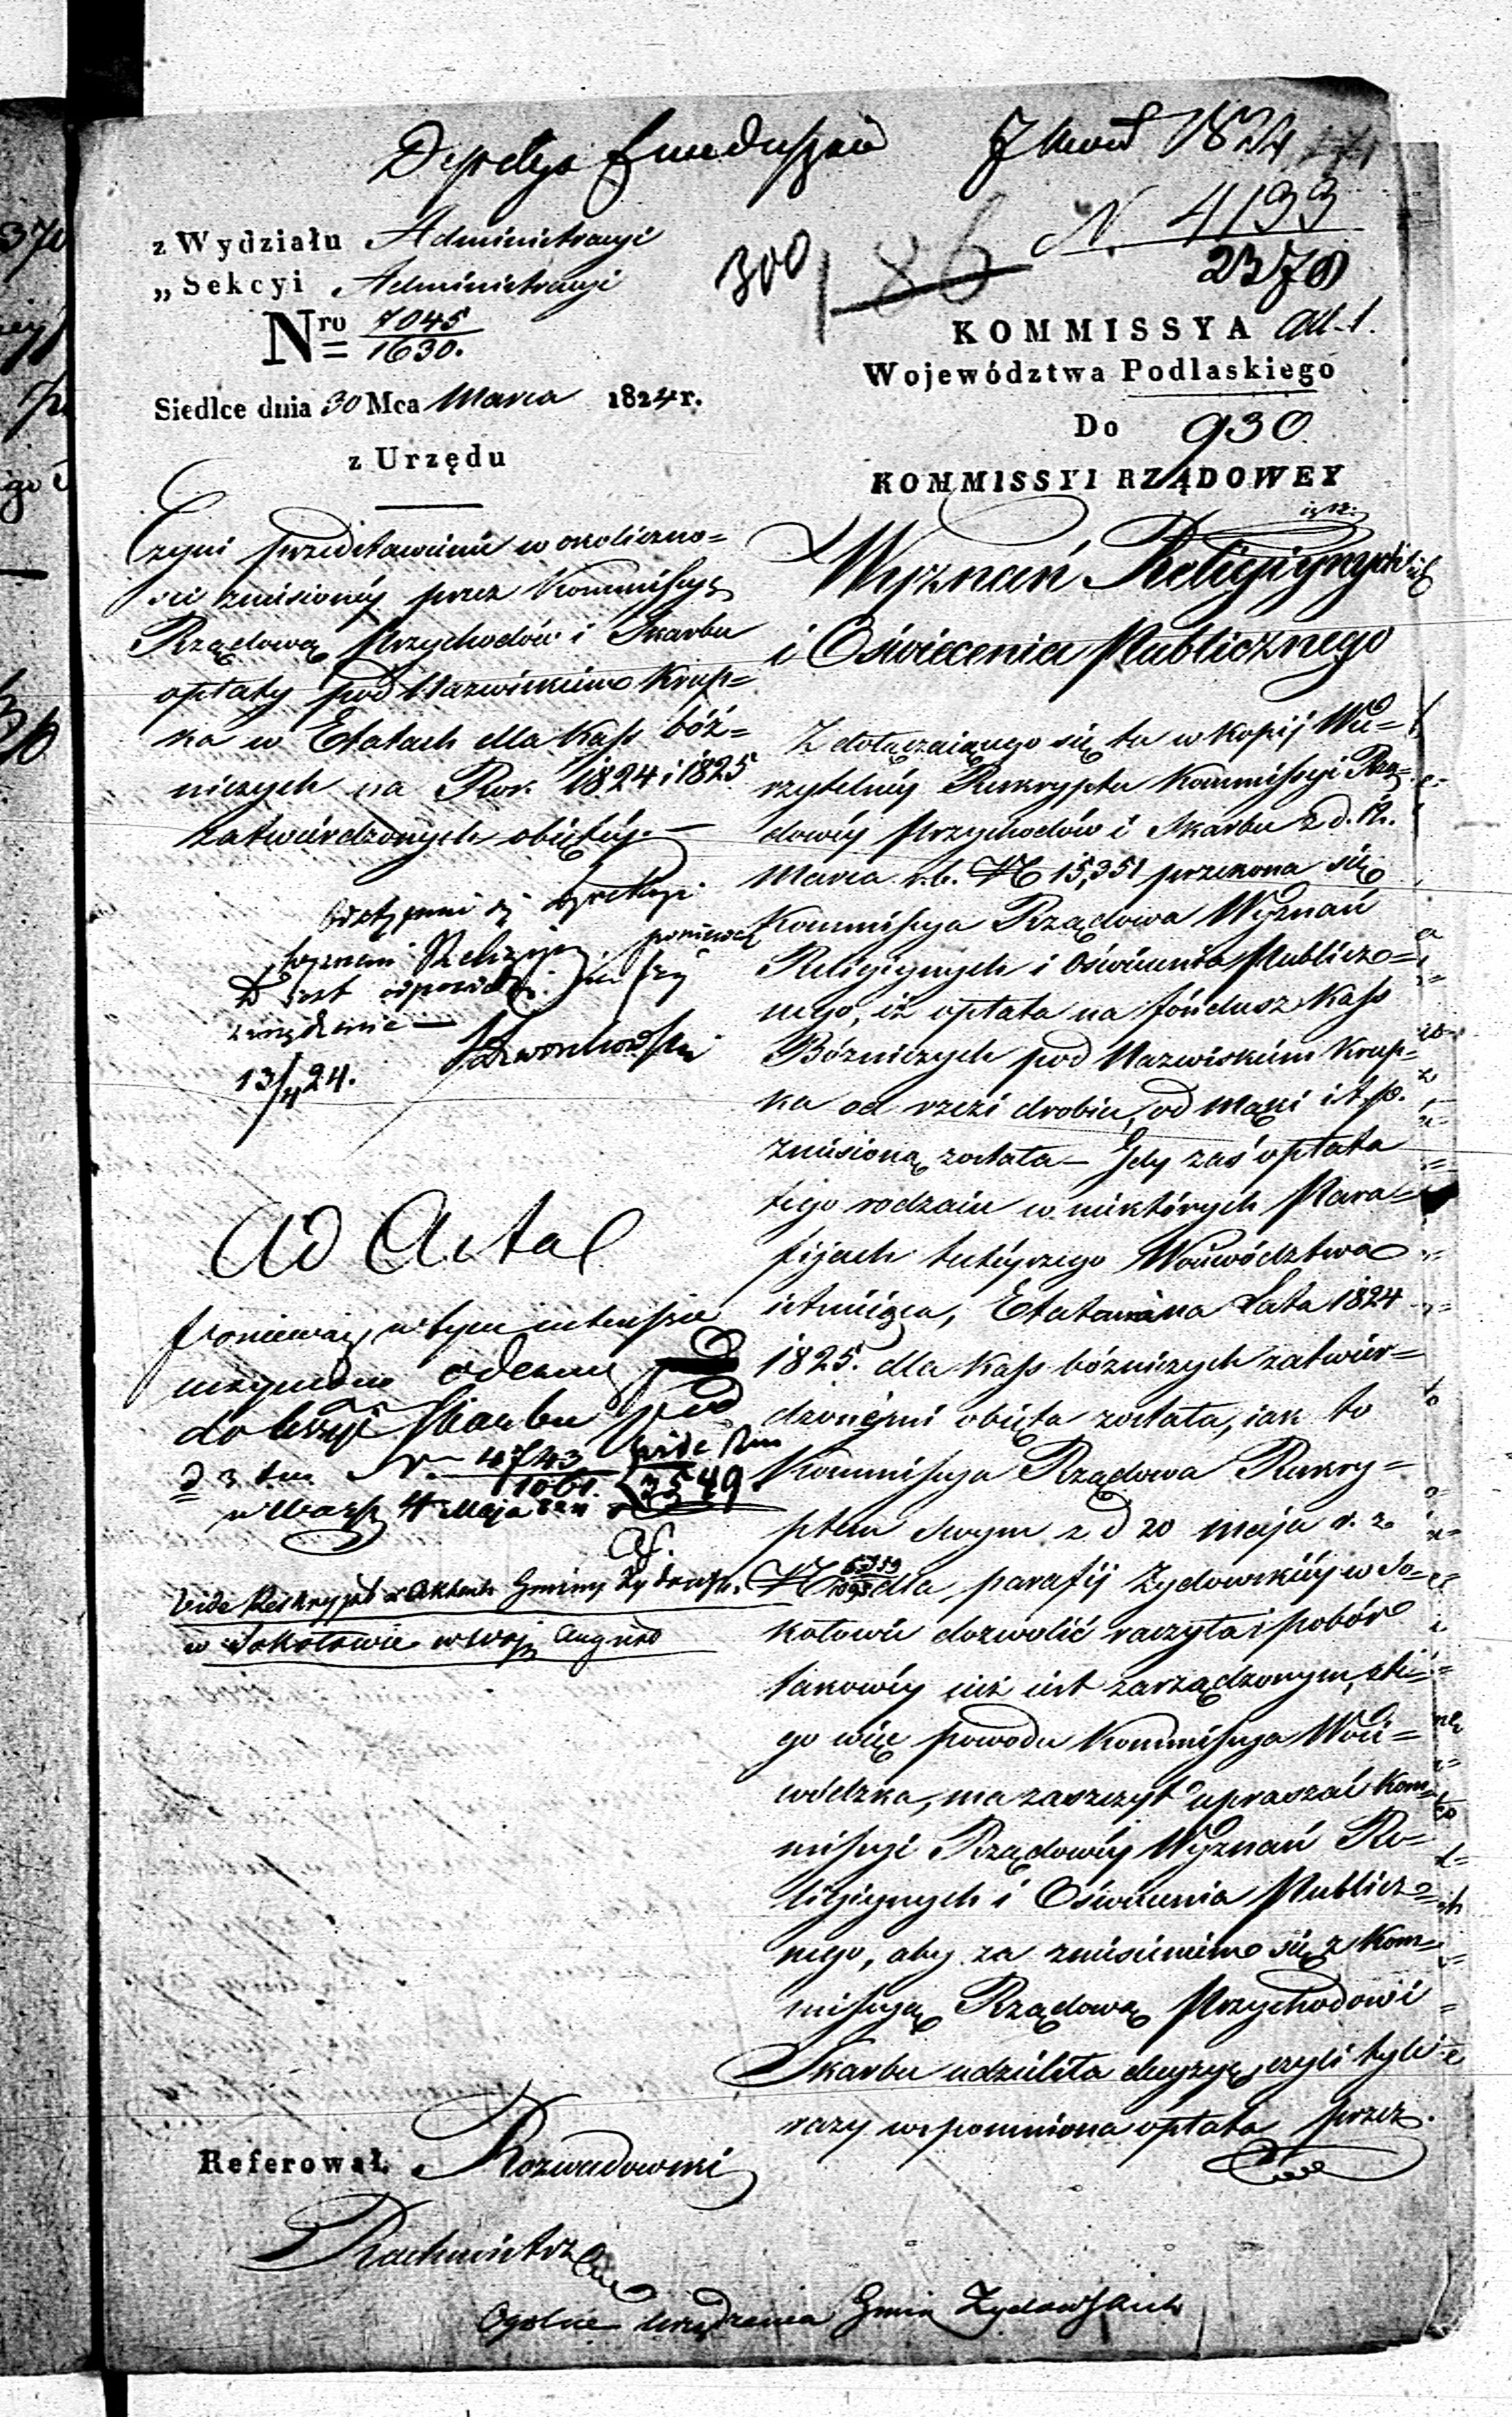 Funduszów 7 1824
z Wydziału Administracyi
„ Sekcyi Administracyi
Nro 7045
1630.
Siedlce dnia 30 Mca Marca 1824 r.
z Urzędu
300
186
N. 4133
2378
KOMMISSYA ad. 1.
Województwa Podlaskiego
Do 930.
KOMMISSYI RZĄDOWEY
Wyznań Religiynych
i Oświecenia Publicznego
Czyni przedstawienie w okoliczno=
ści zniesioney przez Kommissyą
Rządową Przychodów i Skarbu
opłaty pod Nazwiskiem Krup=
ka w Etatach dla Kass bóż=
niczych na Rok 1824 i 1825
zatwierdzonych obiętey. —
Wyznań Religiyn. ponieważ
13/4 24.
Ad Acta
ponieważ w tym interessie
do Skarbu pod
d 3 N. 4743
1061.
vide
3549
4 Maja 824
Vide Reskrypt w Aktach Gminy Żydowsk.
w Sokołowie w Woj. August
Z dołączaiącego się tu w kopij Wie=
rzytelnéy Reskryptu Kommissyi Rzą=
dowéy Przychodów i Skarbu z d. 12.
Marca r. b. N 15,351 przekona się
Kommissya Rządowa Wyznań
Religiynych i Oświecenia Publicz=
nego, iż opłata na fundusz Kass
Bóżniczych pod Nazwiskiem Krup=
ka od rzezi drobiu, od mąki i t. p.
zniesioną została — Gdy zaś opłata
tego rodzaiu w niektórych Para=
fijach tutéyszego Woiewództwa
istnieiąca, Etatami na Lata 1824
1825. dla Kass bóżniczych zatwier=
dzonemi obięta została, iak to
Kommissya Rządowa Reskry=
ptem swym z d 20 maja r. z.
N 6359
1093 dla parafij Żydowskiéy w So=
kołowie dozwolić raczyła i pobór
takowéy już iest zarządzonym, z té=
go więc powodu Kommissya Woie=
wódzka, ma zaszczyt upraszać Kom=
missyi Rządowéy Wyznań Re=
ligiynych i Oświecenia Publicz=
nego, aby za zniesieniem się z Kom=
missyą Rządową Przychodów i
Skarbu udzieliła decyzyę, czyli tyle
razy wspomniona opłata przez
Referował. Rozwadowski
Rachmistrz
Ogólne Urządzenia Gmin Żydowskich